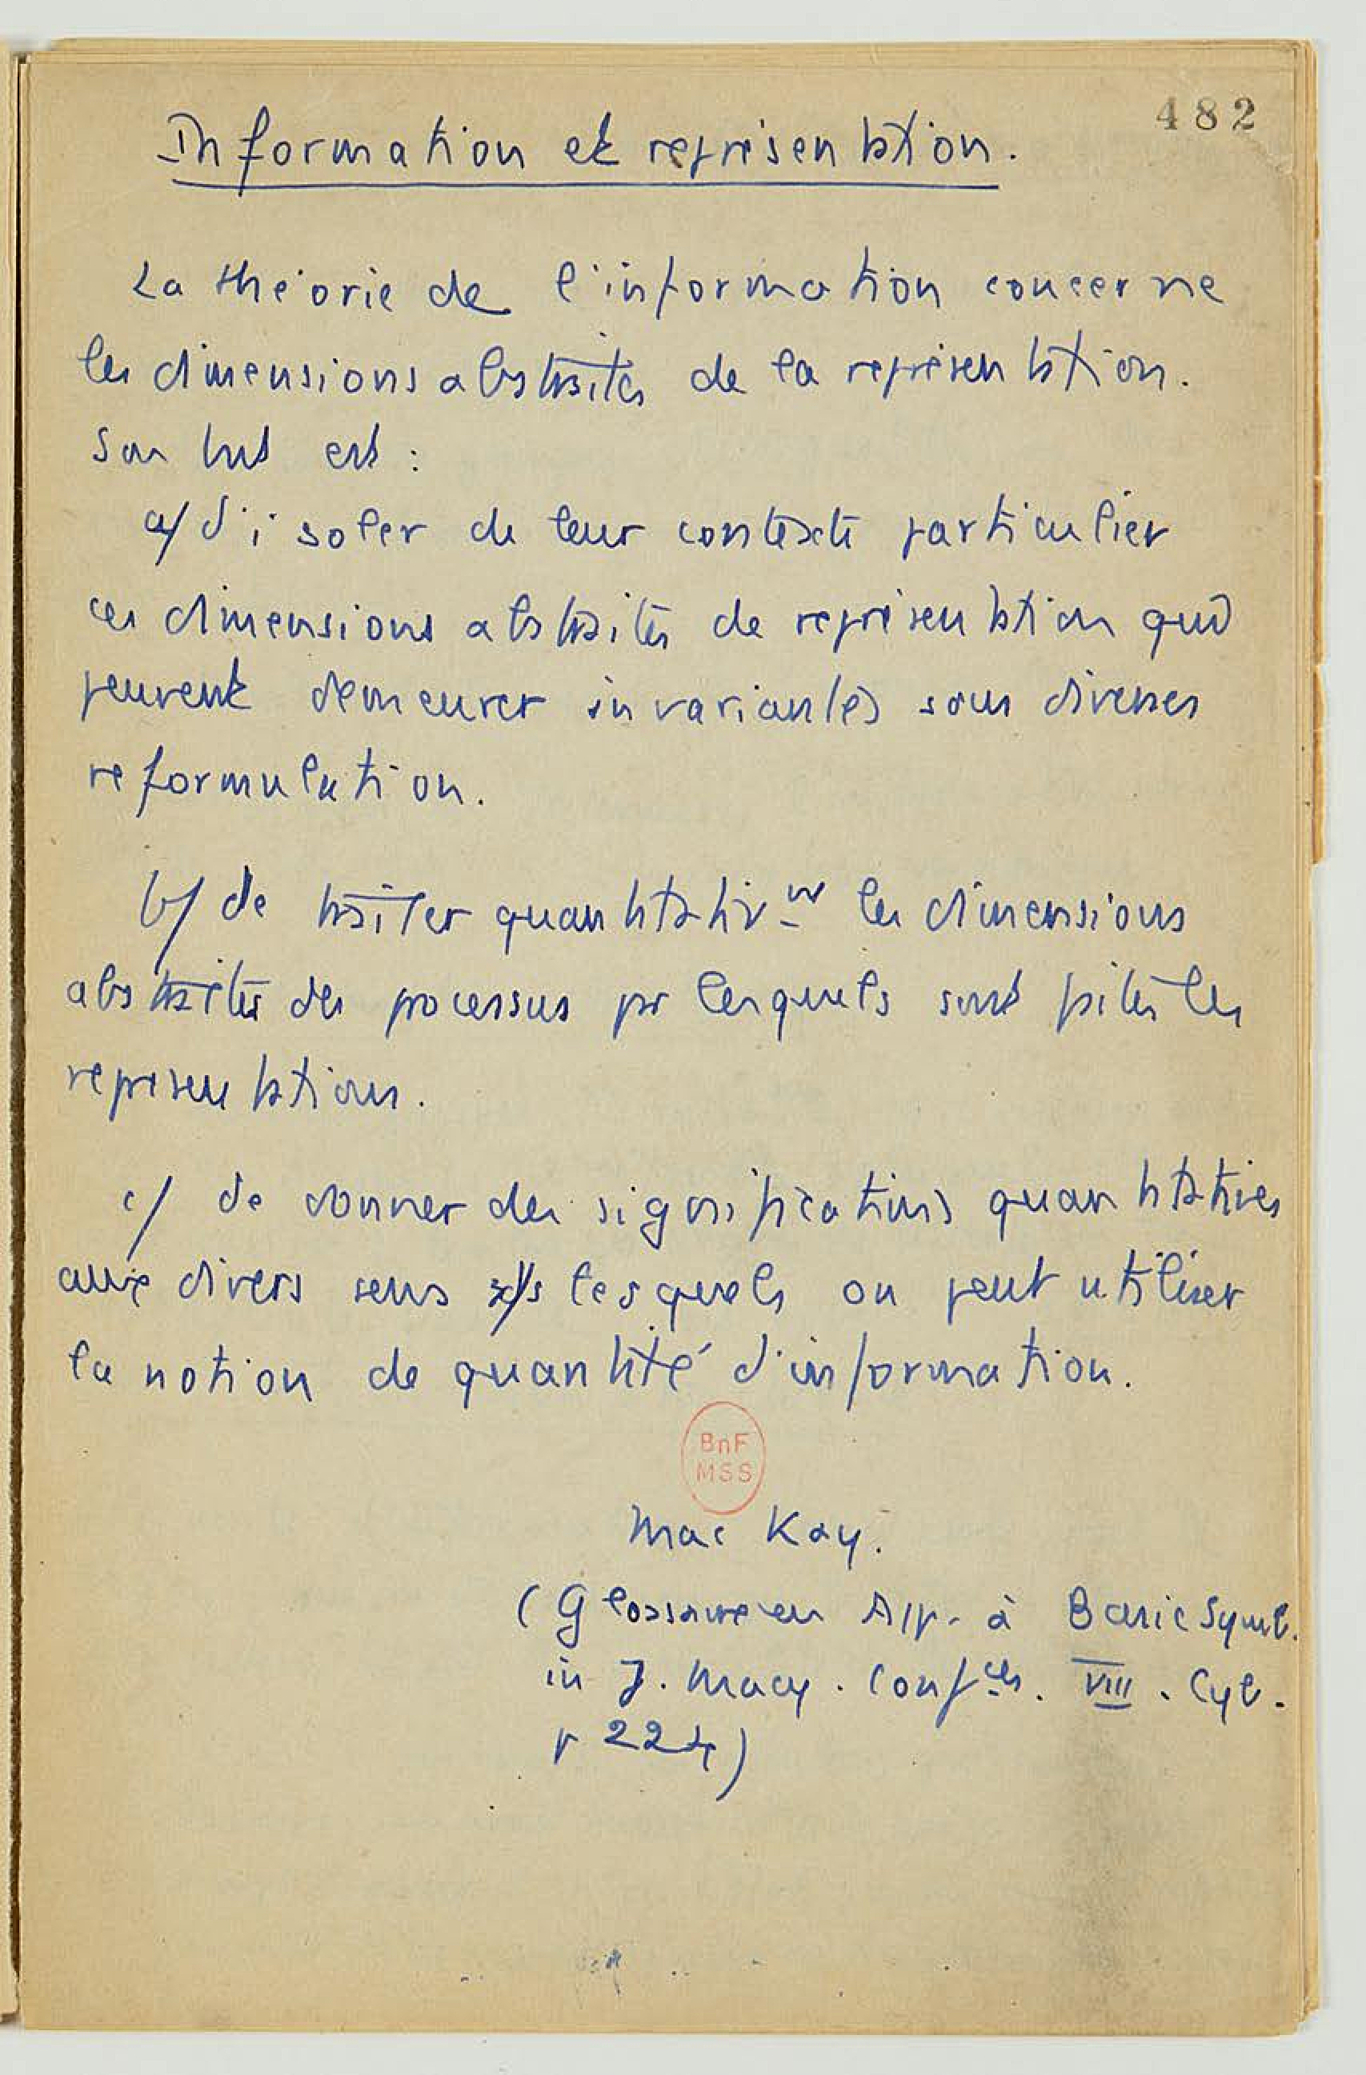 482
Information et représentation.
La théorie de l'information concerne
les dimensions abstraites de la représentation.
Son but est :
a/ d'isoler de leur contexte particulier
ces dimensions abstraites de représentation qui
peuvent demeurer invariantes sous diverses
reformulation.
b/ de traiter quantitativ_nt les dimensions
abstraites des processus par lesquels sont faites les
représentations.
c/ de donner des significations quantitatives
aux divers sens ds lesquels on peut utiliser
la notion de quantité d'information.
BnF
MSS
Mac Kay.
(Glossaire en App. à Basic Symb.
in J. Macy. Conf_ces. VIII. Cyb.
p 224)